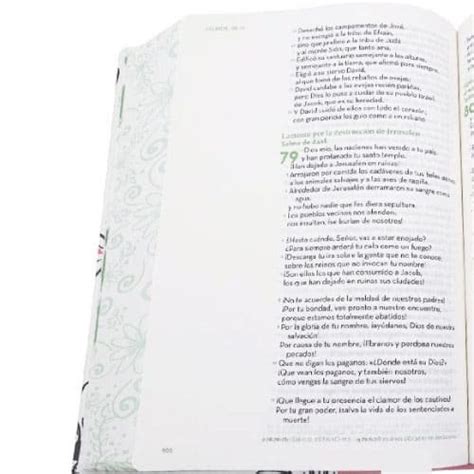 Desechó los campamentos de José,
y no escogió a la tribu de Efraín,
sino que prefirió a la tribu de Judá
y al monte Sión, que tanto ama.
Edificó su santuario semejante a las alturas,
y semejante a la tierra, que afirmó para siempre.
Eligió a su siervo David,
al que tomó de los rebaños de ovejas;
David cuidaba a las ovejas recién paridas,
pero Dios lo puso a cuidar de su pueblo Israel,
de Jacob, que es su heredad.
Y David cuidó de ellos con todo el corazón;
con gran pericia los guió como a un rebaño.
Lamento por la destrucción de Jerusalén
Salmo de Asaf.
79 Dios mío, las naciones han venido a tu país
y han profanado tu santo templo.
¡Han dejado a Jerusalén en ruinas!
Arrojaron por comida los cadáveres de tus fieles
a los animales salvajes y a las aves de rapiña.
Alrededor de Jerusalén derramaron su sangre como
agua,
y no hubo nadie que les diera sepultura.
Los pueblos vecinos nos ofenden;
nos insultan, ¡se burlan de nosotros!
¿Hasta cuándo, Señor, vas a estar enojado?
¿Para siempre arderá tu celo como un fuego?
¡Descarga tu ira sobre la gente que no te conoce,
sobre los reinos que no invocan tu nombre!
¡Son ellos los que han consumido a Jacob,
los que han dejado en ruinas sus ciudades!
¡No te acuerdes de la maldad de nuestros padres!
¡Por tu bondad, ven pronto a nuestro encuentro,
porque estamos totalmente abatidos!
Por la gloria de tu nombre, ¡ayúdanos, Dios de nuestra
salvación!
Por causa de tu nombre, ¡líbranos y perdona nuestros
pecados!
Que no digan los paganos: «¿Dónde está su Dios?»
¡Que vean los paganos, y también nosotros,
cómo vengas la sangre de tus siervos!
¡Que llegue a tu presencia el clamor de los cautivos!
Por tu gran poder, ¡salva la vida de los sentenciados a
muerte!